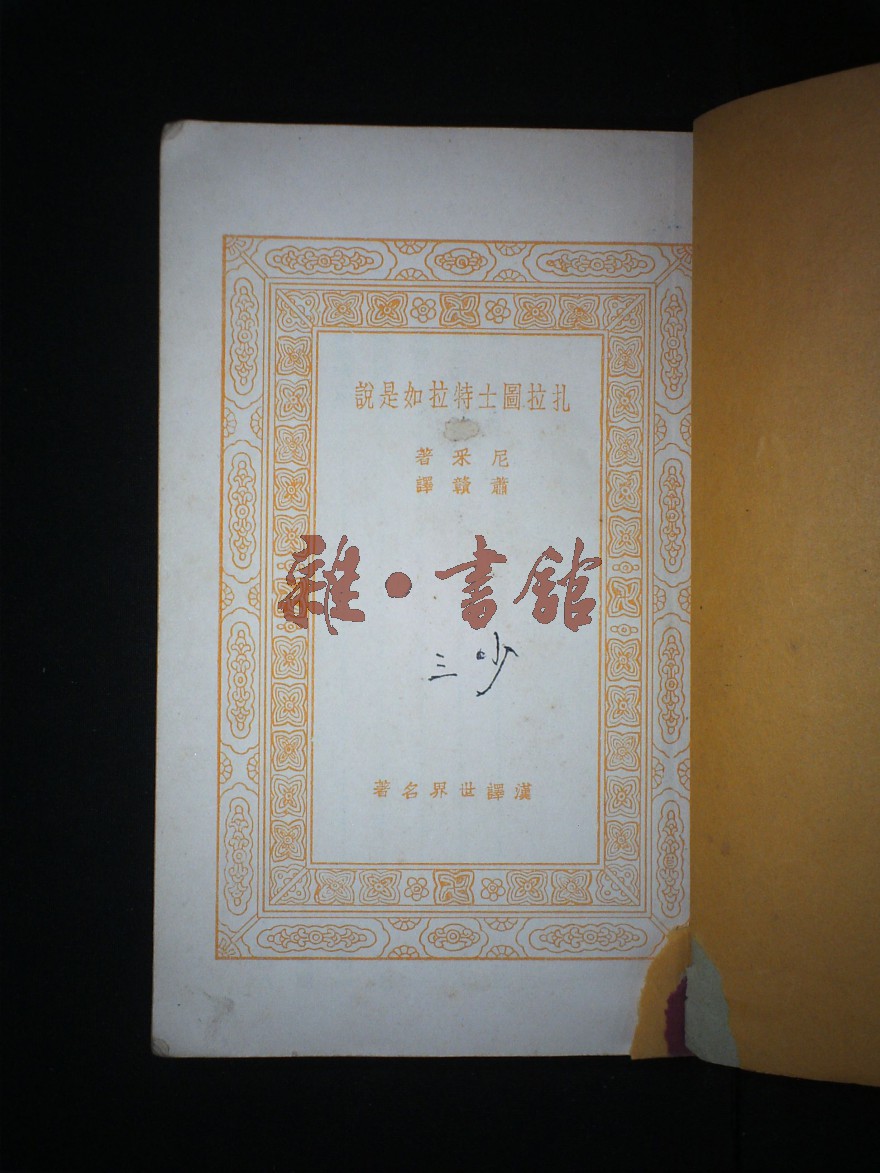 扎拉圖士特拉如是說
尼采著
蕭贛譯
雜•書舘
漢譯世界名著